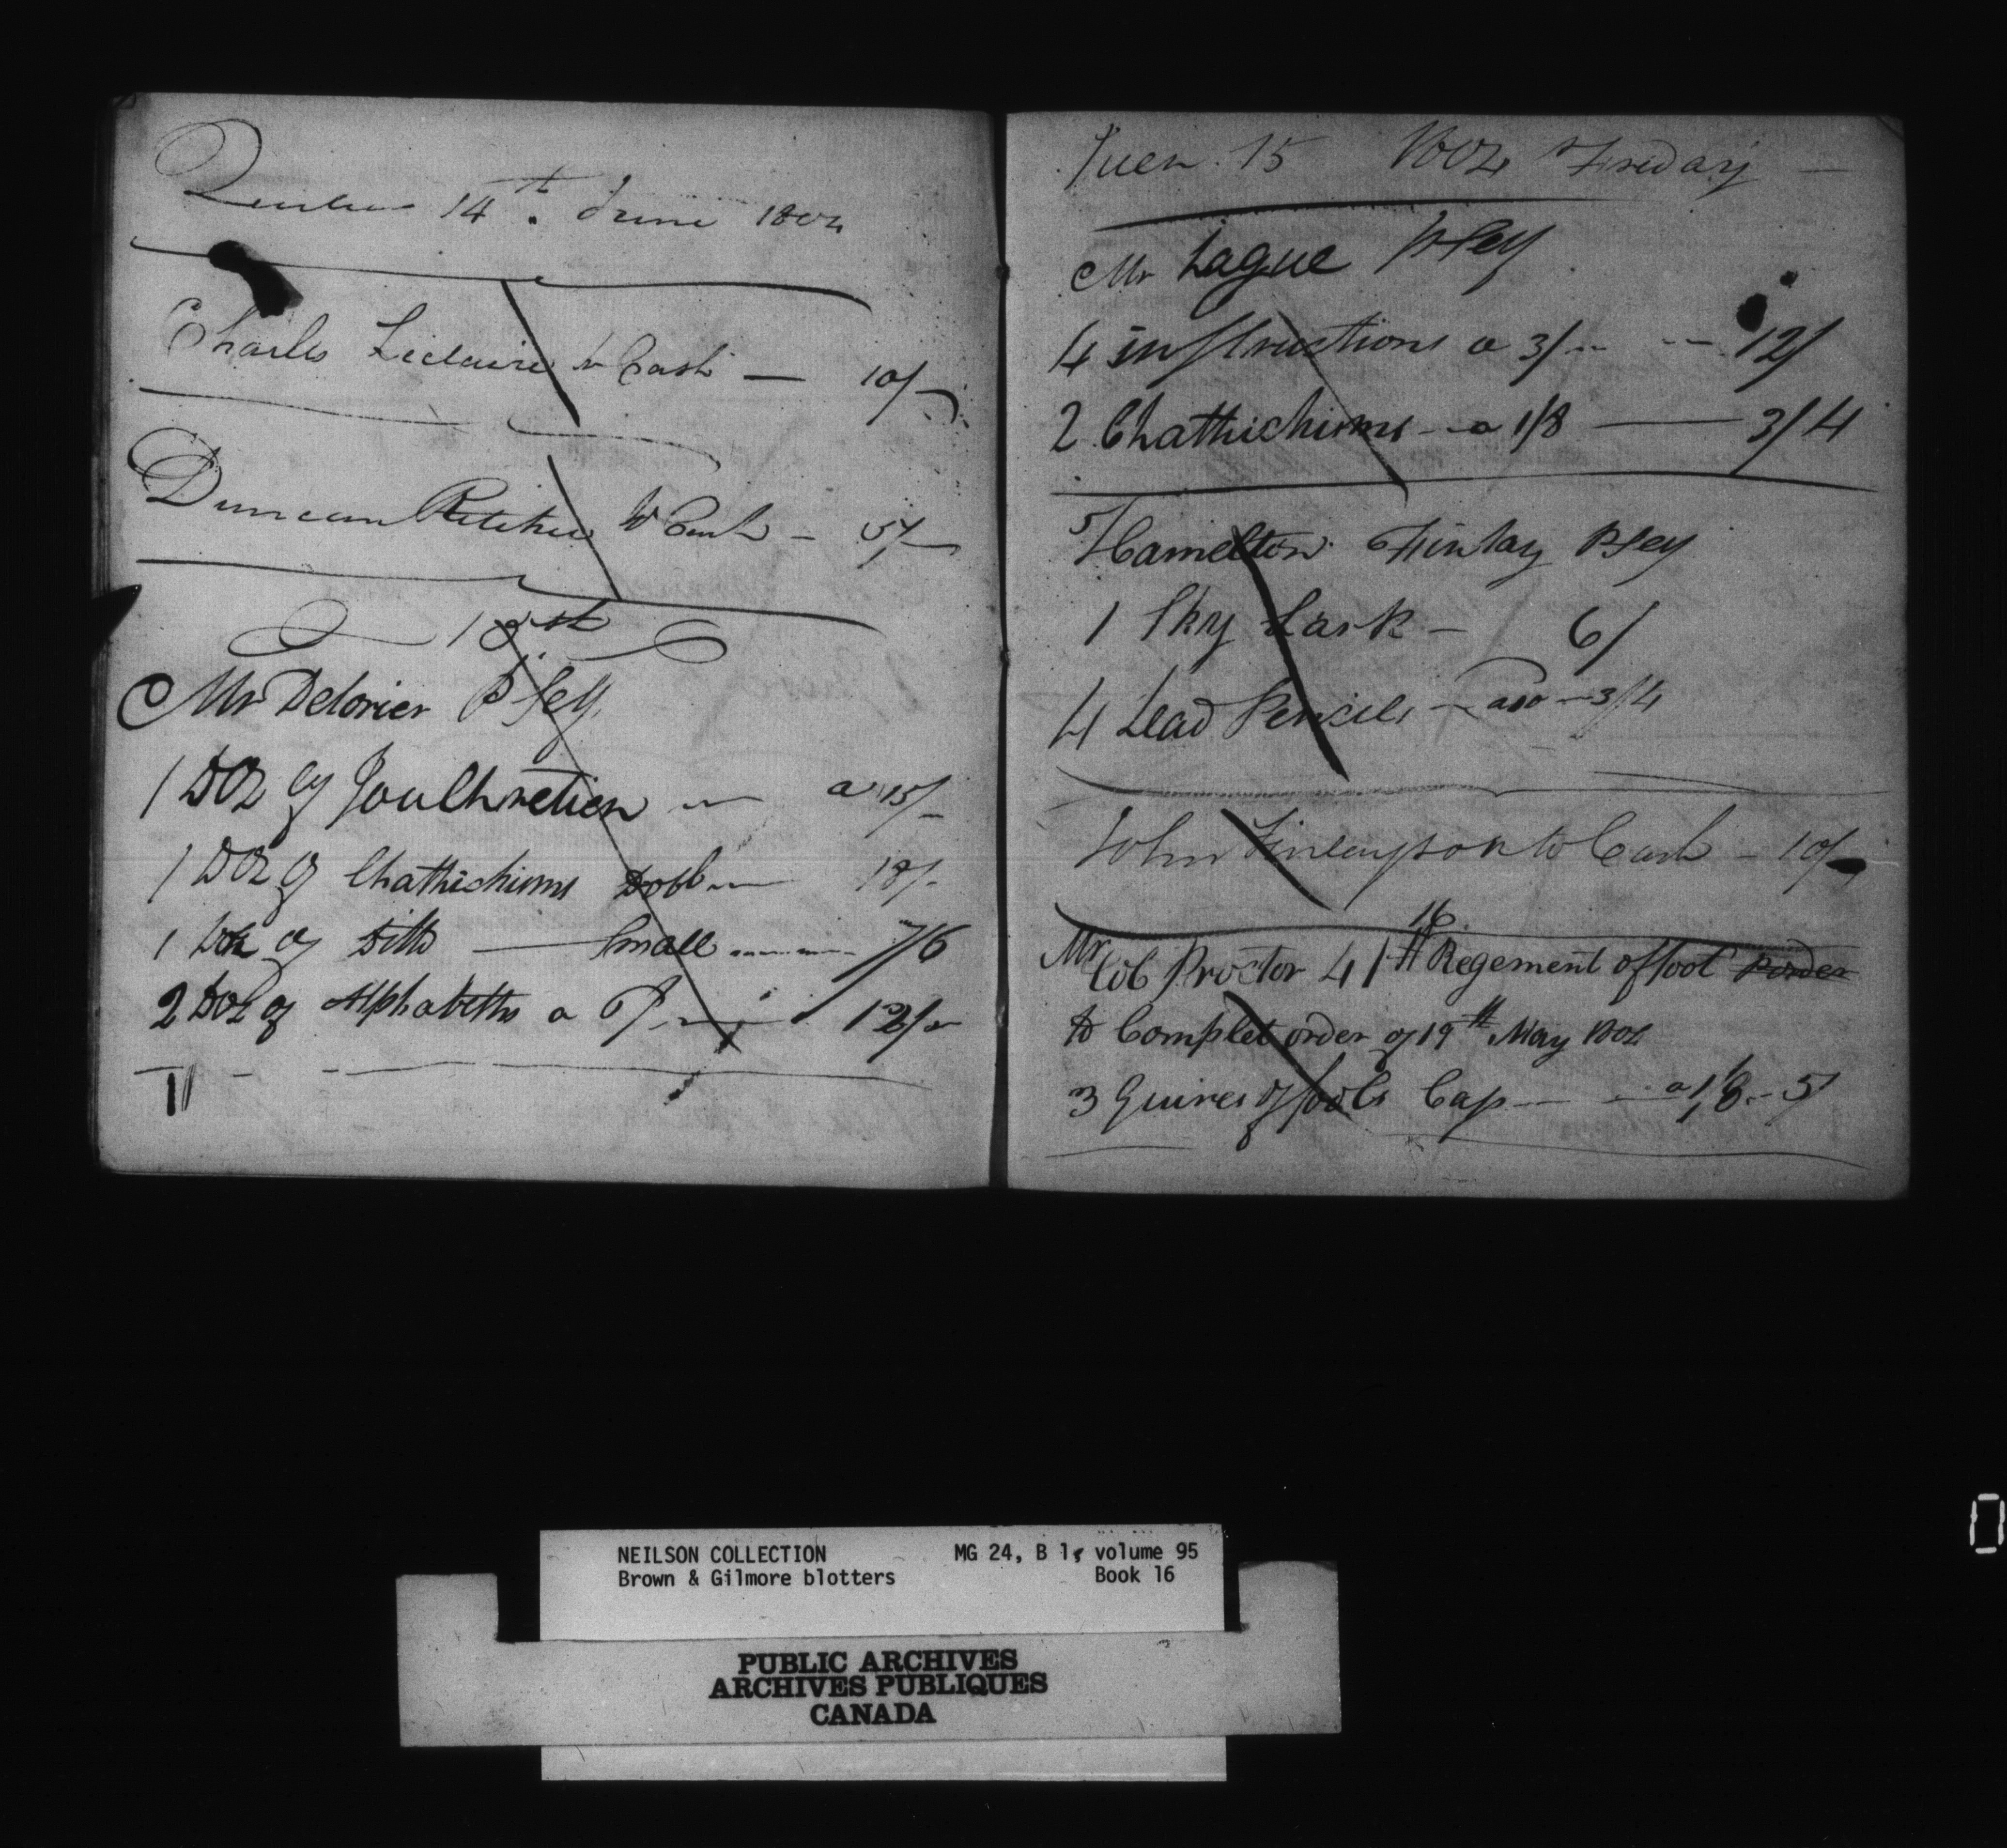 Quebec 14th. June 1804
Charles Leclaire to Cash — 10/-
Duncan Ritchie to Cash - 5/-
15th
Mr Delorier
1 Doz of Jou Chretien a 15/-
1 Doz of Chathichisms Dobl 18/-
1 Doz of Ditto — Small 7/6
2 Doz of Alphabetts a 12/-
Juen 15 1804 Friday —
Mr Lague
4 instructions a 3/ 12/
2 Chathichisms - a 1/8 — 3/4
Hamelton Finlay
1 Sky Lark - 6/
4 Lead Pencils - a 10 - 3/4
John Finlayson to Cash - 10/-
16
Mr Col Proctor 41tt Regement of foot
to Complet order of 19tt May 1804
3 Quires of fools Cap — a 1/8 - 5/
NEILSON COLLECTION MG 24, B 1, volume 95
Brown & Gilmore blotters Book 16
PUBLIC ARCHIVES
ARCHIVES PUBLIQUES
CANADA